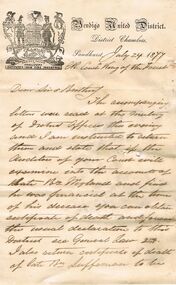 Bendigo United District.
District Chambers,
Sandhurst, July 24 1877
Dear Sir & Brother
The accompanying
letter was read at the meeting
of District Officers this evening
and I am instructed to return
them and state that if the
Auditors of your Court will
examine into the accounts of
that Bro and find
he was financial at the time
of his decease you can obtain
certificate of death and
the usual declaration to this
District see General Law
I also return certificate of death
of late Bro to be